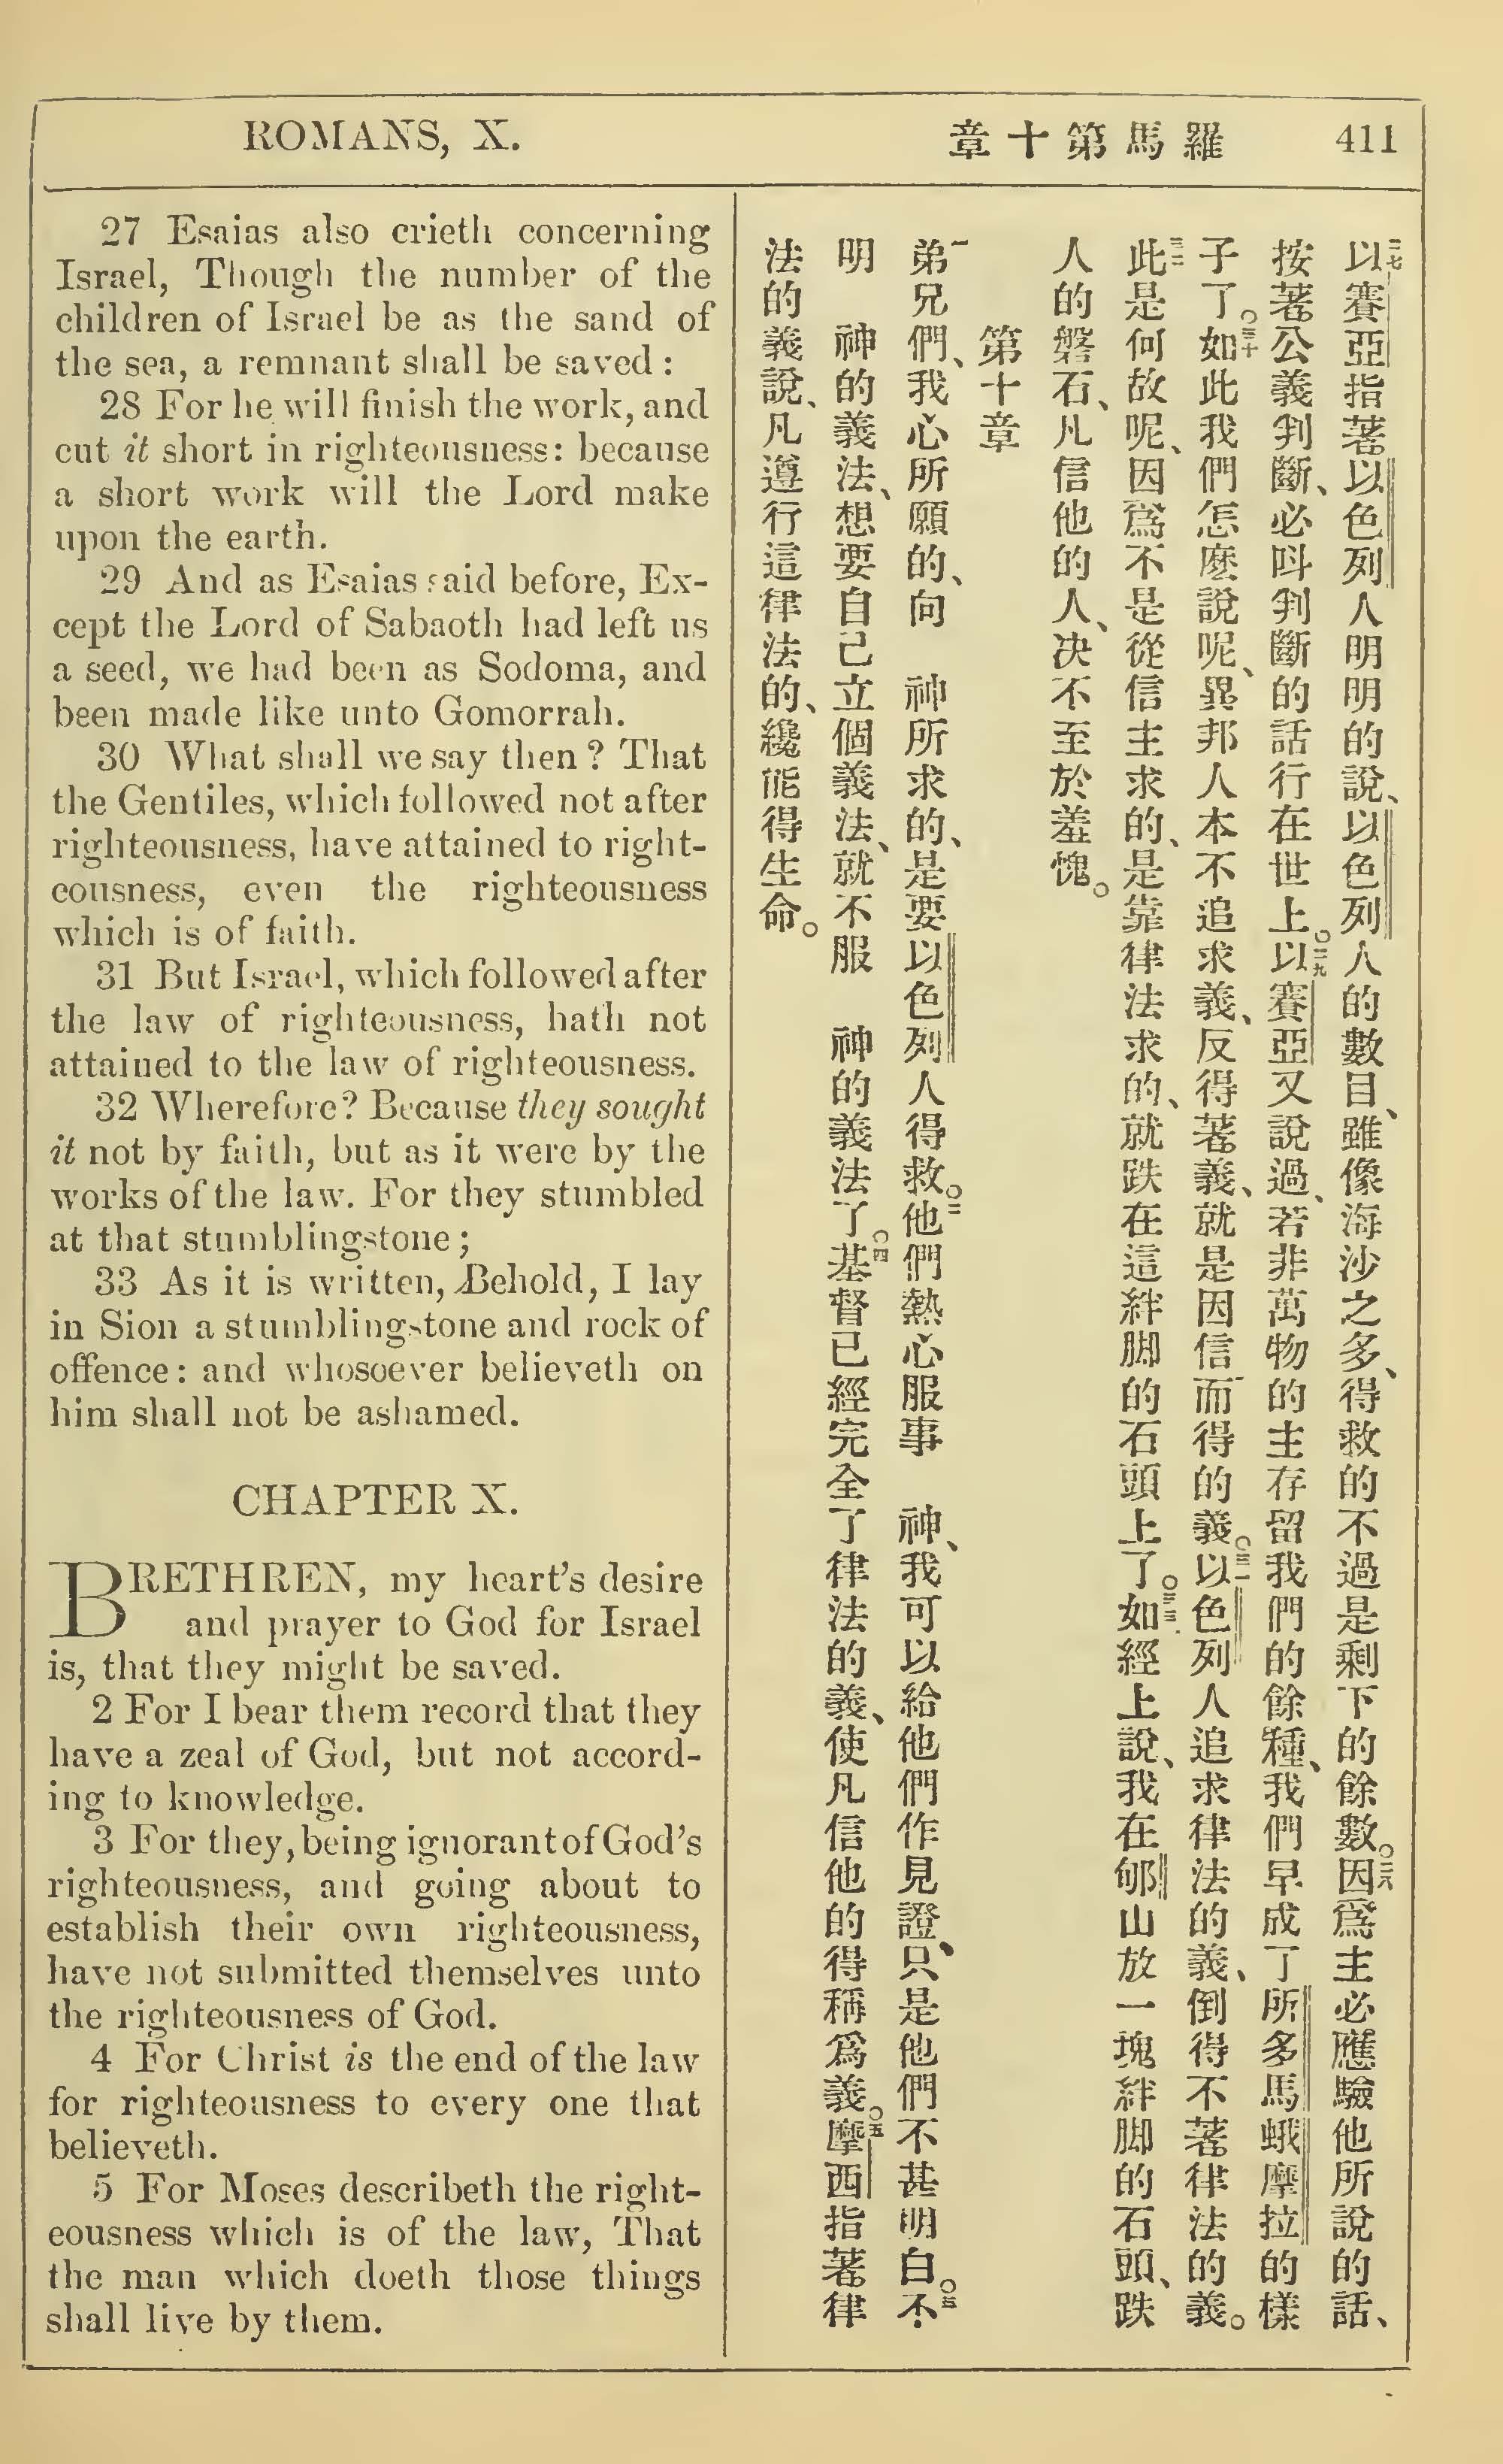 ROMANS, X.
章十第馬羅
411
27 Esaias also crieth concerning
Israel, Though the number of the
children of Israel be as the sand of
the sea, a remnant shall be saved :
28 For he will finish the work, and
cut it short in righteousness: because
a short work will the Lord make
upon the earth.
29 And as Esaias said before, Ex-
cept the Lord of Sabaoth had left us
a seed, we had been as Sodoma, and
been made like unto Gomorrah.
30 What shall we say then ? That
the Gentiles, which followed not after
righteousness, have attained to right-
eousness, even the righteousness
which is of faith.
31 But Israel, which followed after
the law of righteousness, hath not
attained to the law of righteousness.
32 Wherefore? Because they sought
it not by faith, but as it were by the
works of the law. For they stumbled
at that stumblingstone ;
33 As it is written, Behold, I lay
in Sion a stumblingstone and rock of
offence: and whosoever believeth on
him shall not be ashamed.
CHAPTER X.
BRETHREN, my heart's desire
and prayer to God for Israel
is, that they might be saved.
2 For I bear them record that they
have a zeal of God, but not accord-
ing to knowledge.
3 For they, being ignorant of God's
righteousness, and going about to
establish their own righteousness,
have not submitted themselves unto
the righteousness of God.
4 For Christ is the end of the law
for righteousness to every one that
believeth.
5 For Moses describeth the right-
eousness which is of the law, That
the man which doeth those things
shall live by them.
二七以賽亞指著以色列人明明的說、以色列人的數目、雖像海沙之多、得救的不過是剩下的餘數。二八因爲主必應驗他所說的話、
按著公義判斷、必呌判斷的話行在世上。二九以賽亞又說過、若非萬物的主存留我們的餘種、我們早成了所多馬蛾摩拉的樣
子了。三十如此我們怎麽說呢、異邦人本不追求義、反得著義、就是因信而得的義。三一以色列人追求律法的義、倒得不著律法的義。
三二此是何故呢、因爲不是從信主求的、是靠律法求的、就跌在這絆脚的石頭上了。三三如經上說、我在郇山放一塊絆脚的石頭、跌
人的磐石、凡信他的人、决不至於羞愧。
第十章
一弟兄們、我心所願的、向 神所求的、是要以色列人得救。二他們熱心服事 神、我可以給他們作見證、只是他們不甚明白。三不
明 神的義法、想要自己立個義法、就不服 神的義法了。四基督已經完全了律法的義、使凡信他的得稱爲義。五摩西指著律
法的義說、凡遵行這律法的、纔能得生命。